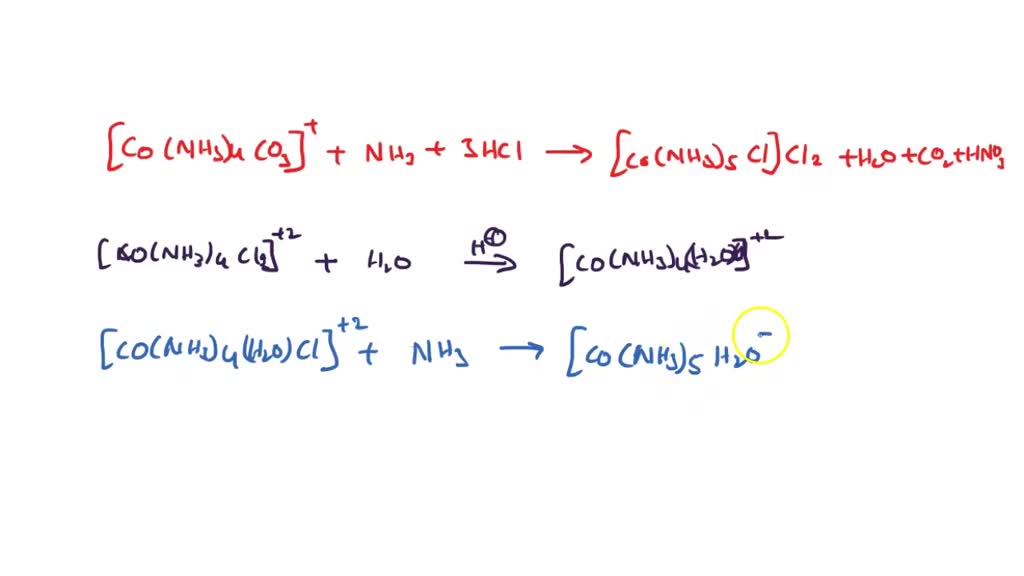 [Co(NH3)4 CO3]+ + NH3 + 3HCl → [Co(NH3)5 Cl]Cl2 + H2O + CO2 + HNO3
[CO(NH3)4 Cl2]+2 + H2O H⊕ → [CO(NH3)4(H2O)]+2
[CO(NH3)4(H2O)Cl]+2 + NH3 → [CO(NH3)5 H2O-